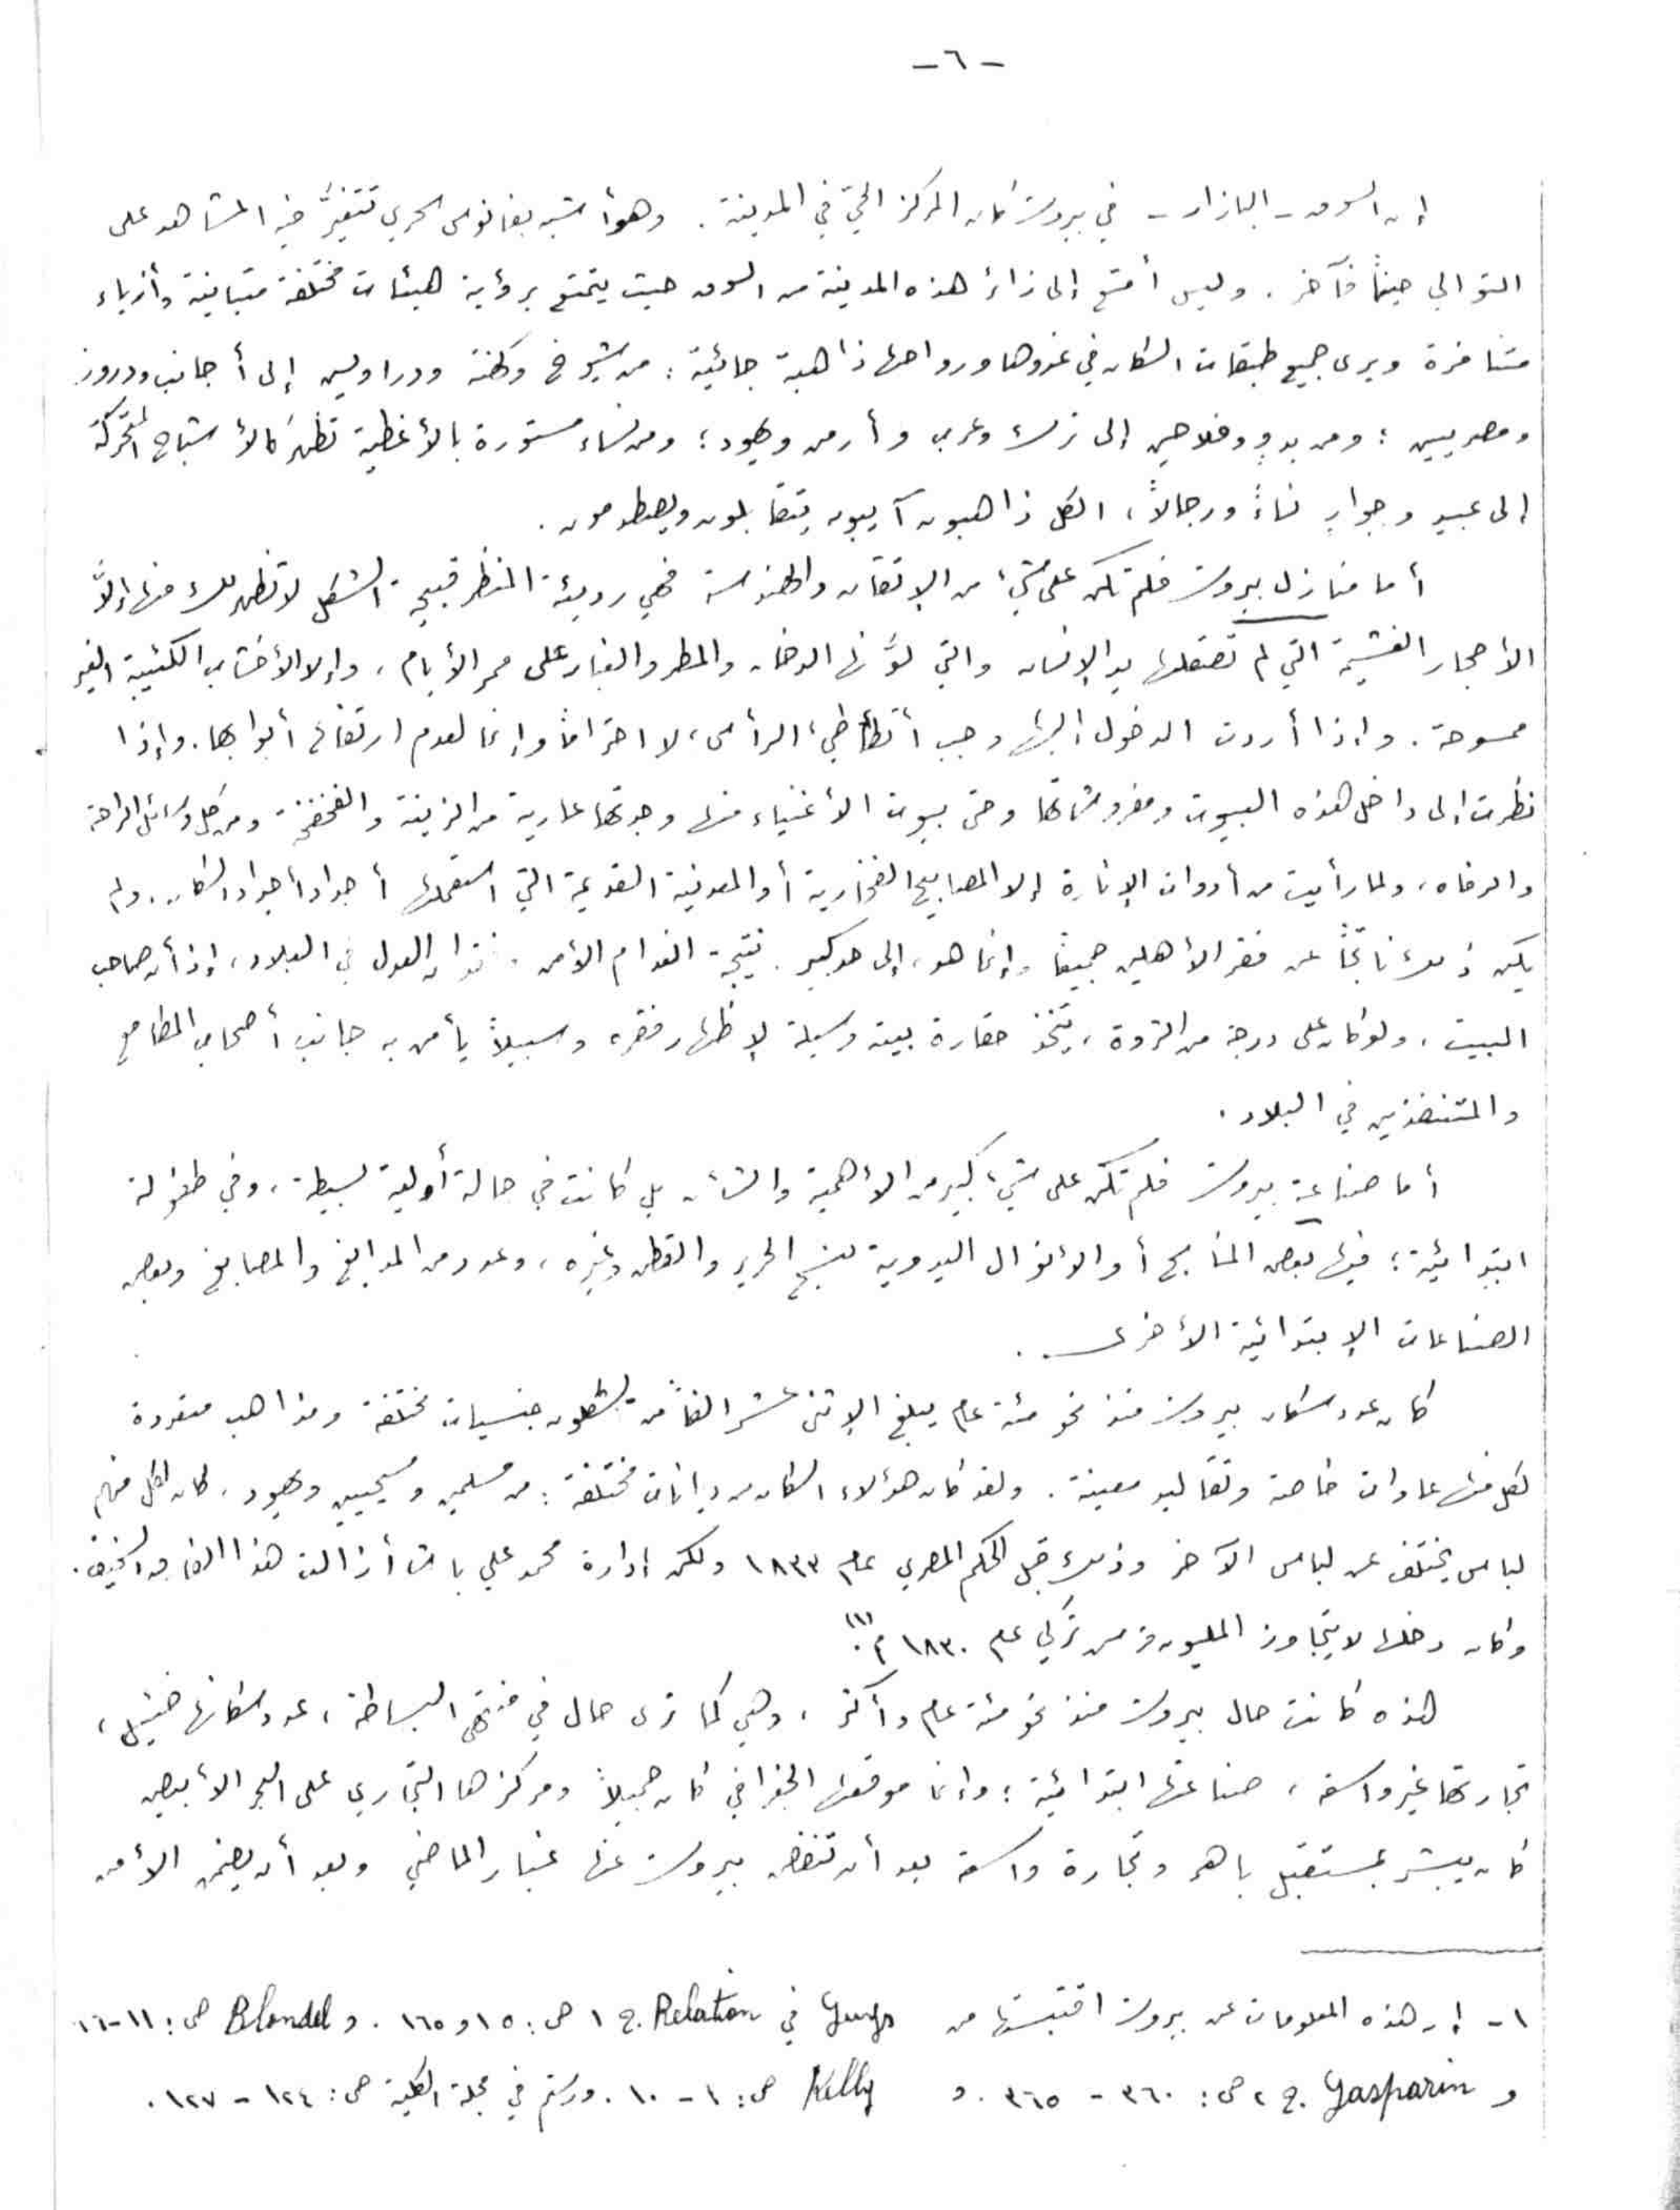 -٦-
إن السوق - البازار - في بيروت كان المركز الحيّ في المدينة. وهو أشبه بفانوس سحري تتغيَّر فيه المشاهد على
التوالي حيناً فآخر. وليس أمتع إلى زائر هذه المدينة من السوق حيث يتمتع برؤية هيئات مختلفة متباينة وأزياء
متنافرة ويرى جميع طبقات السكان في غدوها ورواحها ذاهبة جائية: من شيوخ وكهنة ودراويش إلى أجانب ودروز
ومصريين؛ ومن بدوٍ وفلاحين إلى ترك وعرب وأرمن ويهود؛ ومن نساء مستورة بالأغطية تظهر كالأشباح المتحركة
إلى عبيد وجوارٍ نساءً ورجالاً، الكل ذاهبون آيبون يتقابلون ويصطدمون.
أما منازل بيروت فلم تكن على شيء من الإتقان والهندسة فهي رديئة المنظر قبيحة الشكل لا تظهر لك منها إلاَّ
الأحجار الغشيمة التي لم تصقلها يد الإنسان والتي لوَّنها الدخان والمطر والغبار على ممر الأيام، وإلا الأخشاب الكئيبة الغير
ممسوحة. وإذا أردت الدخول إليها وجب أن تطأطئ الرأس، لا احتراماً وإنما لعدم ارتفاع أبوابها. وإذا
نظرت إلى داخل هذه البيوت ومفروشاتها وحتى بيوت الأغنياء منها وجدتها عارية من الزينة والفخفخة ومن كل وسائل الراحة
والرفاه، ولما رأيت من أدوات الإنارة إلا المصابيح الفخارية أو المعدنية القديمة التي استعملها أجداد أجداد السكان. ولم
يكن ذلك ناتجاً عن فقر الأهلين جميعاً وإنما هو، إلى حد كبير. نتيجة انعدام الأمن وفقدان العدل في البلاد، إذ أن صاحب
البيت، ولو كان على درجة من الثروة، يتخذ حقارة بيته وسيلة لإظهار فقره وسبيلاً يأمن به جانب أصحاب المطامع
والمتنفذين في البلاد.
أما صناعة بيروت فلم تكن على شيء كبير من الأهمية والشأن بل كانت في حالة أولية بسيطة، وفي طفولة
ابتدائية؛ فيها بعض المناسج أو الأنوال اليدوية لنسج الحرير والقطن وغيره، وعدد من المدابغ والمصابغ وبعض
الصناعات الإبتدائية الأخرى.
كان عدد سكان بيروت منذ نحو مئة عام يبلغ الإثنى عشر الفاً من جنسيات مختلفة ومذاهب متعددة
لكل منها عادات خاصة وتقاليد معينة. ولقد كان هؤلاء السكان من ديانات مختلفة: من مسلمين ومسيحيين ويهود. كان لكل منهم
لباس يختلف عن لباس الآخر وذلك قبل الحكم المصري عام ١٨٣٣ ولكن إدارة محمد علي باشا أزالت هذا الفارق السخيف.
وكان دخلها لا يتجاوز المليون فرنس تركي عام ١٨٣٠ م.(١)
هذه كانت حال بيروت منذ نحو مئة عام وأكثر، وهي كما ترى حال في منتهى البساطة، عدد سكانها ضئيل،
تجارتها غير واسعة، صناعتها ابتدائية؛ وإنما موقعها الجغرافي كان جميلاً ومركزها التجاري على البحر الأبيض
كان يبشر بمستقبل باهر وتجارة واسعة بعد أن تنفض بيروت عنها غبار الماضي وبعد أن يضمن الأمن
١- إن هذه المعلومات عن بيروت اقتبستها من Guys في Relation ج. ١ ص: ١٥ و ١٦٥. و Blondel ص: ١١-١٦
و Gasparin ج. ٢ ص: ٣٦٠ - ٣٦٥. و Kelly ص: ١ - ١٠. ورستم في مجلة الكلية ص: ١٢٤ - ١٢٧.